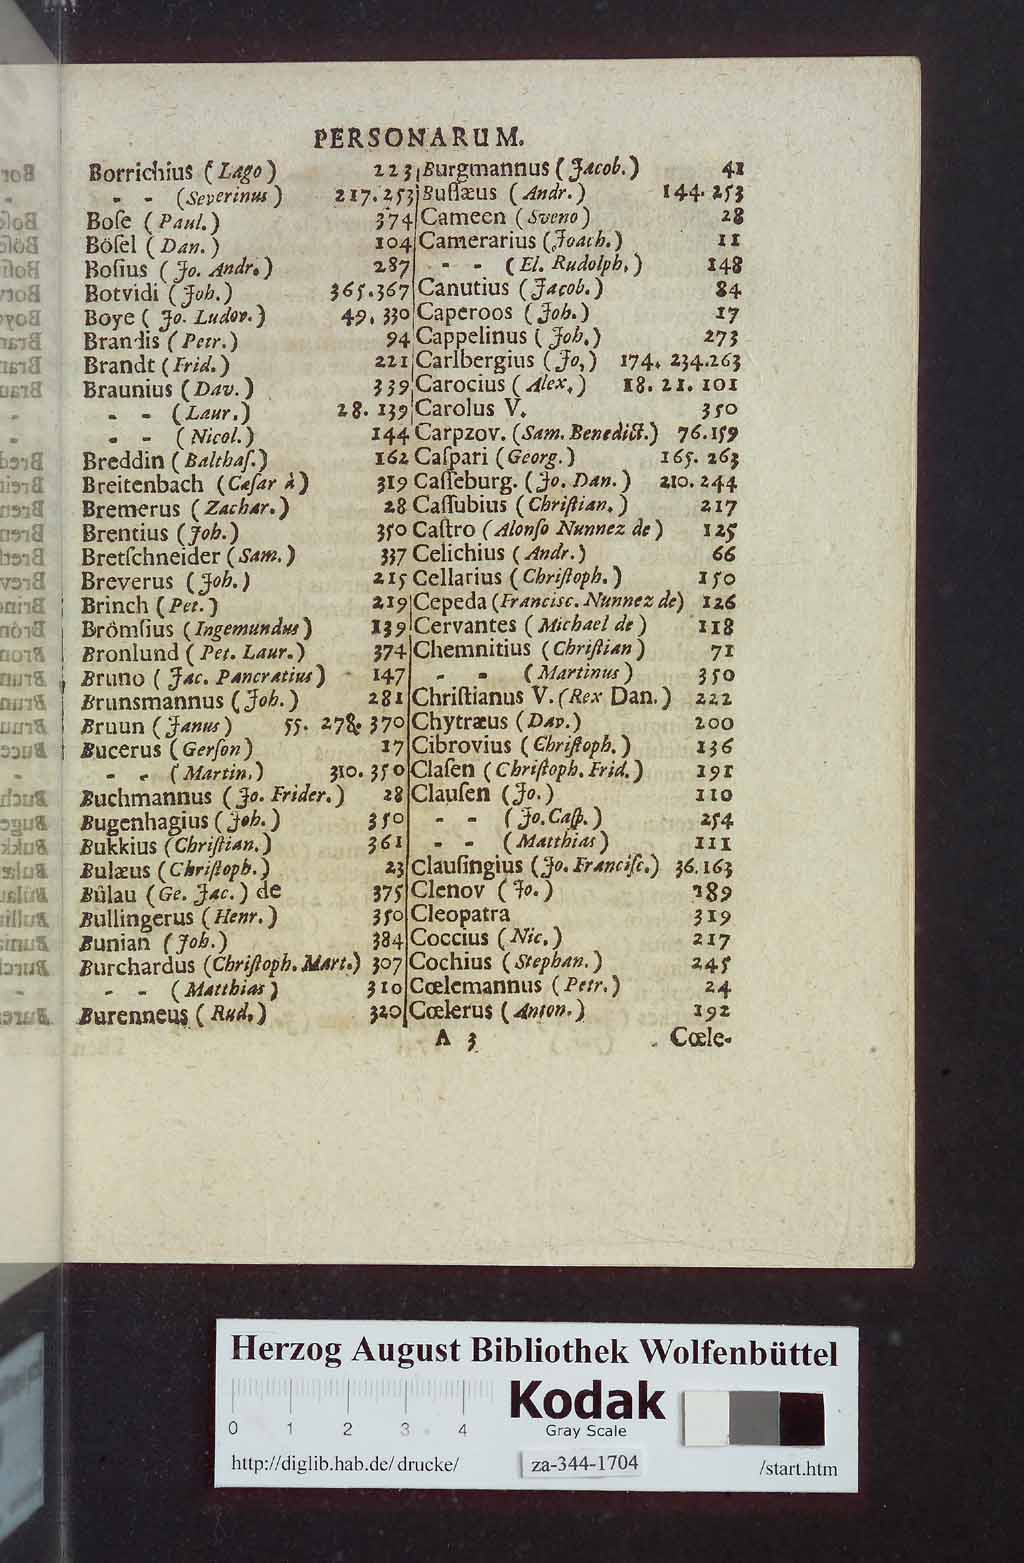 PERSONARUM.
Borrichius (Lago) 223
- - (Severinus) 217.253
Boſe (Paul.) 374
Böſel (Dan.) 104
Boſius (Jo. Andr.) 287
Botvidi (Joh.) 365.367
Boye ( Jo. Ludov.) 49. 330
Brandis (Petr.) 94
Brandt (Frid.) 221
Braunius (Dav.) 339
- - (Laur.) 28. 139
- - (Nicol.) 144
Breddin (Balthaſ.) 162
Breitenbach (Cæſar à) 319
Bremerus (Zachar.) 28
Brentius (Joh.) 350
Bretſchneider (Sam.) 337
Breverus (Joh.) 215
Brinch (Pet.) 219
Brömſius (Ingemundus) 139
Bronlund (Pet. Laur.) 374
Bruno ( Jac. Pancratius) 147
Brunsmannus (Joh.) 281
Bruun (Janus) 55. 278. 370
Bucerus (Gerſon) 17
- - (Martin.) 310. 350
Buchmannus (Jo. Frider.) 28
Bugenhagius (Joh.) 350
Bukkius (Chriſtian.) 361
Bulæus (Chriſtoph.) 23
Bülau (Ge. Jac.) de 375
Bullingerus (Henr.) 350
Bunian (Joh.) 384
Burchardus (Chriſtoph. Mart.) 307
- - (Matthias) 310
Burenneus (Rud.) 320
Burgmannus (Jacob.) 41
Buſſæus (Andr.) 144. 253
Cameen (Sveno) 28
Camerarius (Joach.) 11
- - (El. Rudolph.) 148
Canutius (Jacob.) 84
Caperoos (Joh.) 17
Cappelinus ( Joh.) 273
Carlbergius (Jo,) 174. 234.263
Carocius (Alex.) 18. 21. 101
Carolus V. 350
Carpzov. (Sam. Benedict.) 76.159
Caſpari (Georg.) 165. 263
Caſſeburg. (Jo. Dan.) 210. 244
Caſſubius (Chriſtian.) 217
Caſtro (Alonſo Nunnez de) 125
Celichius (Andr.) 66
Cellarius (Chriſtoph.) 150
Cepeda (Francisc. Nunnez de) 126
Cervantes (Michael de) 118
Chemnitius (Chriſtian) 71
- - (Martinus) 350
Chriſtianus V. (Rex Dan.) 222
Chytræus (Dav.) 200
Cibrovius (Chriſtoph.) 136
Claſen (Chriſtoph. Frid.) 191
Clauſen (Jo.) 110
- - (Jo. Caſp.) 254
- - (Matthias) 111
Clauſingius (Jo. Franciſc.) 36.163
Clenov (Jo.) 289
Cleopatra 319
Coccius (Nic.) 217
Cochius (Stephan.) 245
Cœlemannus (Petr.) 24
Cœlerus (Anton.) 192
A 3 Cœle-
Herzog August Bibliothek Wolfenbüttel
0 1 2 3 4
Kodak
Gray Scale
http://diglib.hab.de/drucke/ za-344-1704 /start.htm